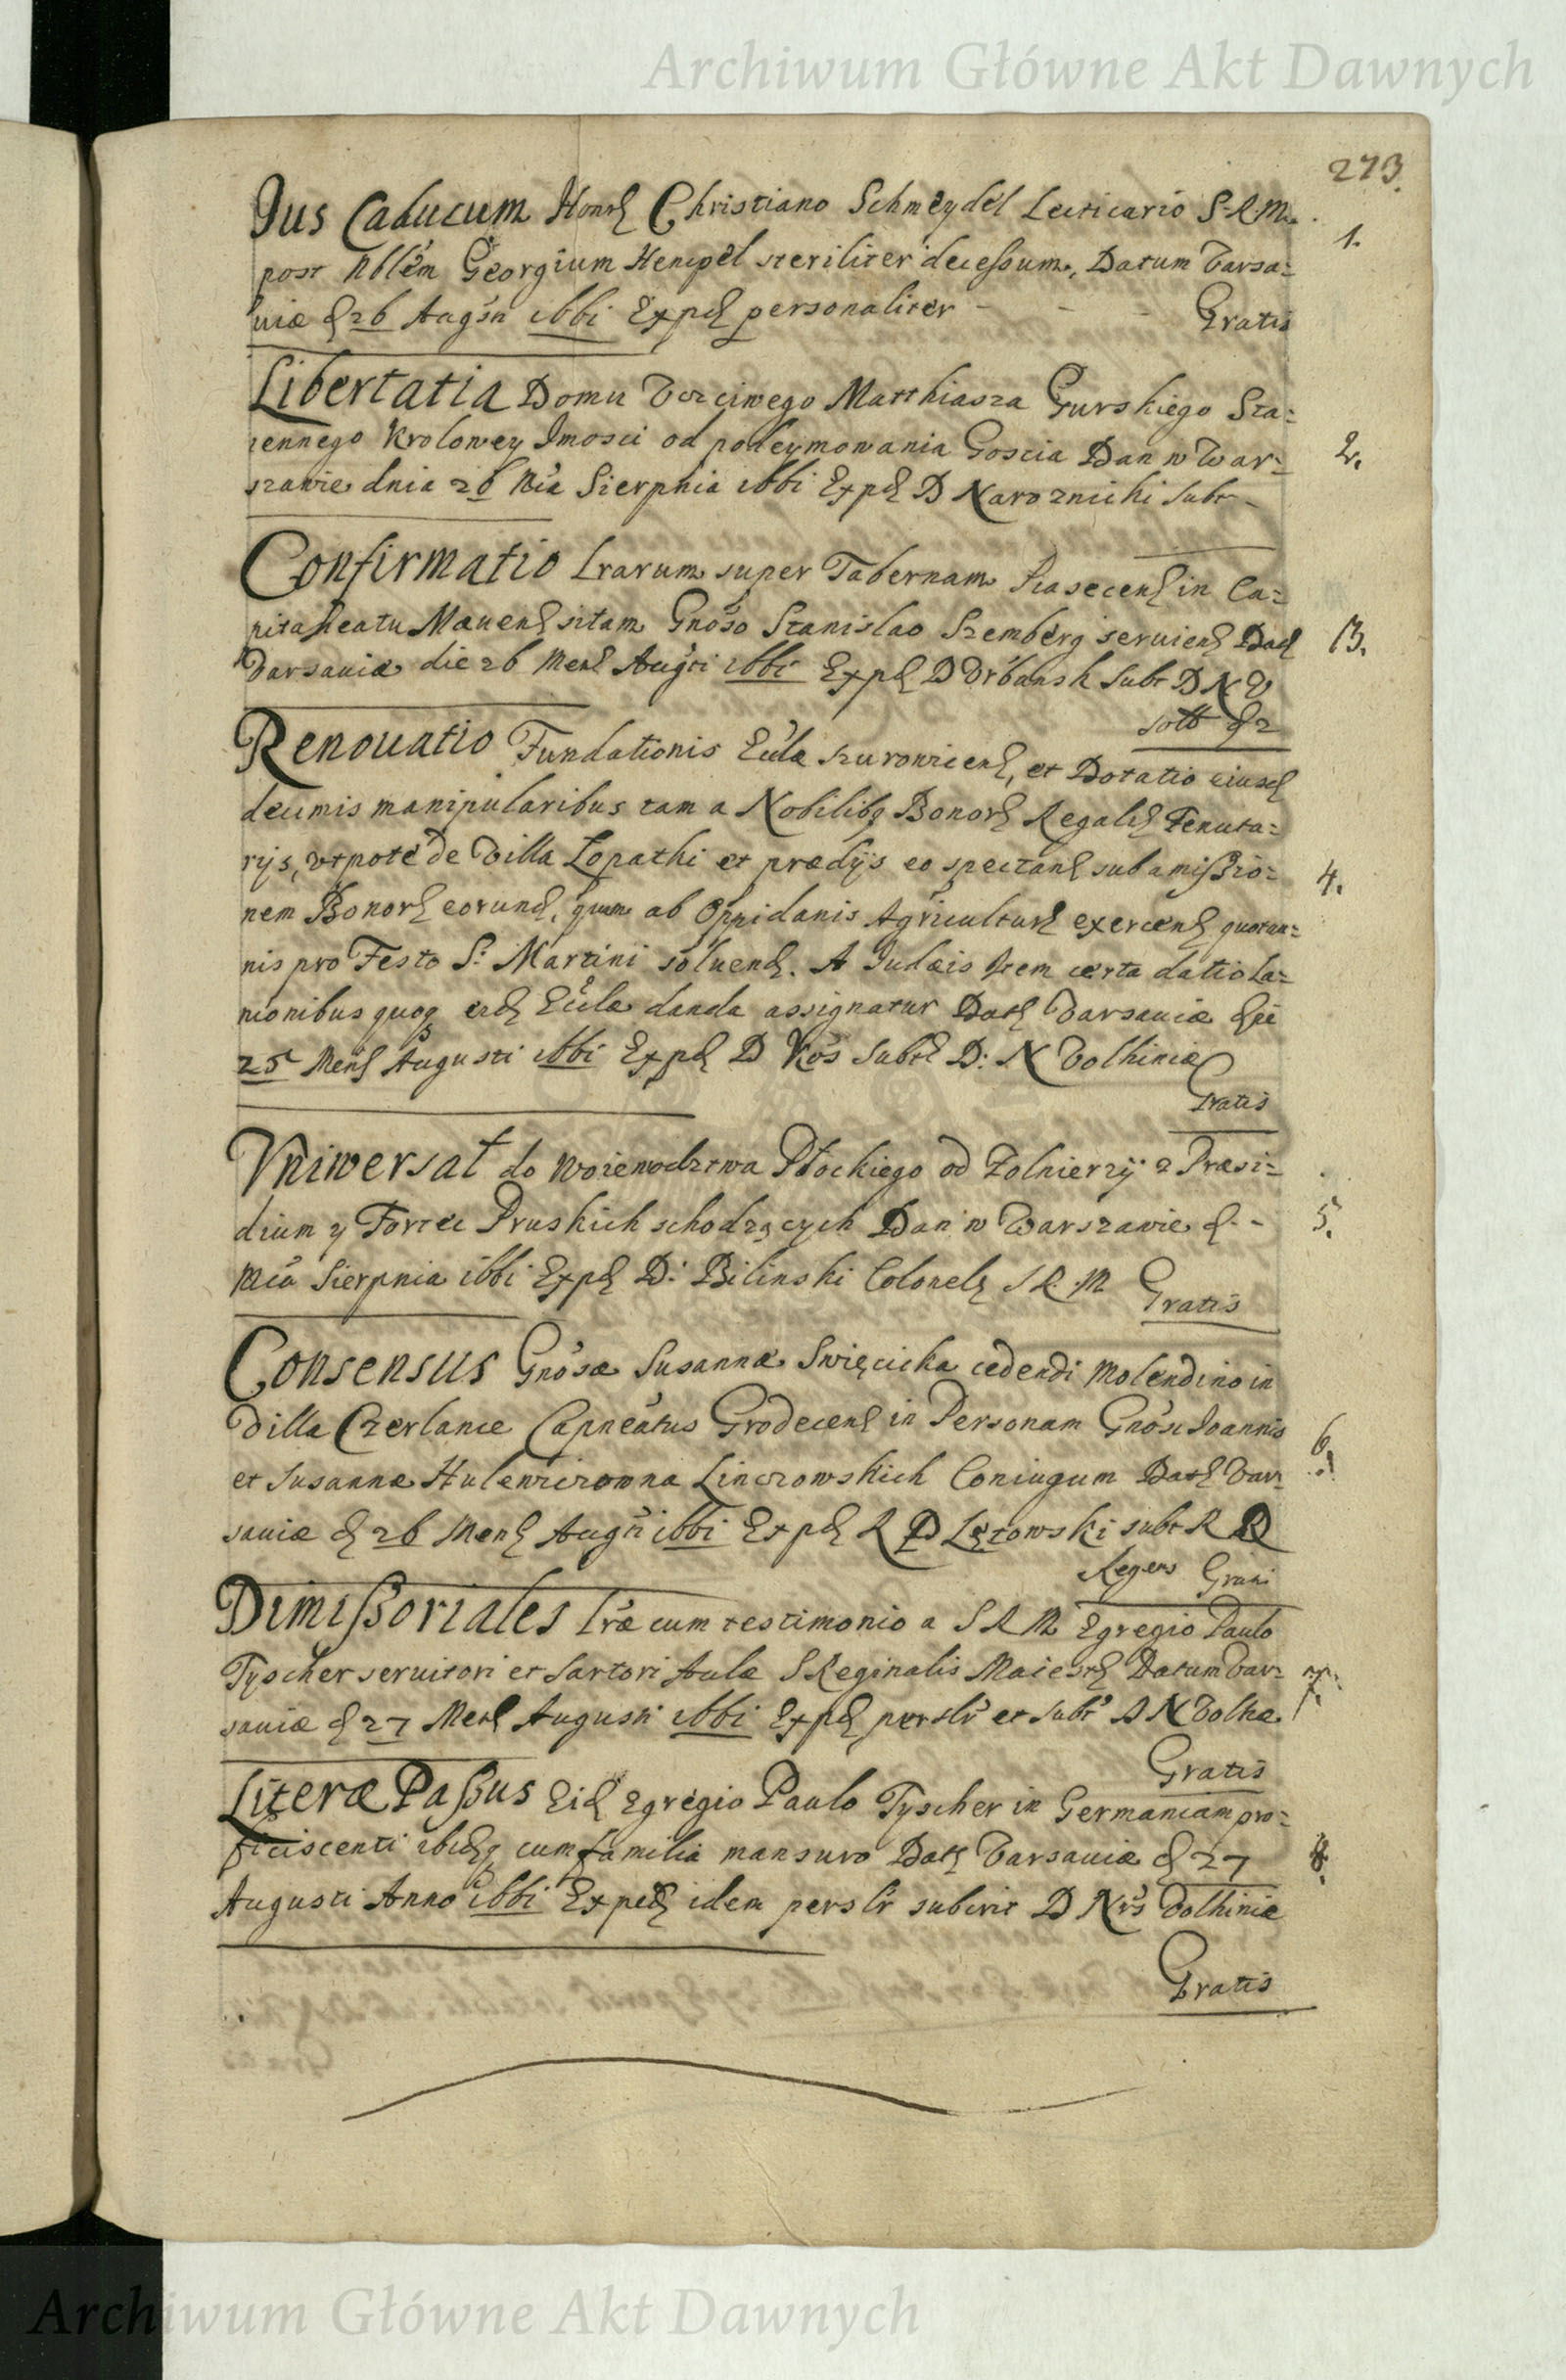 Archiwum Główne Akt Dawnych
273.
Jus Caducum Honrꝝ Christiano Schmeydel Lecticario S.R.M. 1.
post Nblem Georgium Hempel steriliter decessum, Datum Varsa=
uiæ d 26 Augsti 1661 Expd personaliter - - - Gratis
Libertatia Domu Vczciwego Matthiasza Gurskiego Sta=
iennego Krolowey Imosci od podeymowania Goscia Dan w War= 2.
szawie dnia 26 Mca Sierpnia 1661 Expd D Naroznicki subr
Confirmatio Lrarum super Tabernam Piasecens in Ca=
pitaneatu Mæuens sitam Gnoso Stanislao Szemberg seruiens Dad 3.
Varsauiæ die 26 Mens Augti 1661 Expd D Vrbansk subr D N V
sott d 2
Renouatio Fundationis Ecclæ szurowiens, et Dotatio eiusd
decimis manipularibus tam a Nobilibq Bonorꝝ Regaliꝝ Tenuta=
rijs, vtpote de Villa Lopathi et prædijs eo spectans sub amissio= 4.
nem Bonorꝝ eorund, quam ab Oppidanis Agriculturꝝ exercens quotan=
nis pro Festo S: Martini soluend. A Judæis Item certa datio La=
nionibus quoq eid Ecclæ danda assignatur Dat Varsauiæ die
25 Mens Augusti 1661 Expd D Kos subr D: N Volhiniæ
Gratis
Vniwersał do Woiewodztwa Płockiego od Zolnierzy z Præsi=
dium y Fortec Pruskich schodzących Dan w Warszawie d - 5.
Mca Sierpnia 1661 Expd D: Bilinski Colonels S R M Gratis
Consensus Gnosæ Susannæ Swięcicka cedendi Molendino in
Villa Czerlance Capneatus Grodecens in Personam Gnosi Joannis 6.
et Susannæ Hulewiczowna Linczowskich Coniugum Dat Var=
sauiæ d 26 Mens Augti 1661 Expd R D Lętowski subr R D
Regens Grati
Dimissoriales Lræ cum testimonio a S R M Egregio Paulo
Tyscher seruitori et Sartori Aulæ S Reginalis Maiestꝝ Datum Var= 7.
sauiæ d 27 Mens Augusti 1661 Expd perslr et subr D N Volhæ
Gratis
Literæ Passus Eid Egregio Paulo Tyscher in Germaniam pro=
ficiscenti ibidq cum familia mansuro Dat Varsauiæ d 27 8.
Augusti Anno 1661 Exped idem perslr subcrit D Nrs Volhiniæ
Gratis
Archiwum Główne Akt Dawnych